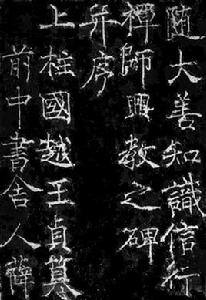 隨大善知識信行
禪師興教之碑
并序
上柱國越王貞
前中書舍人薛